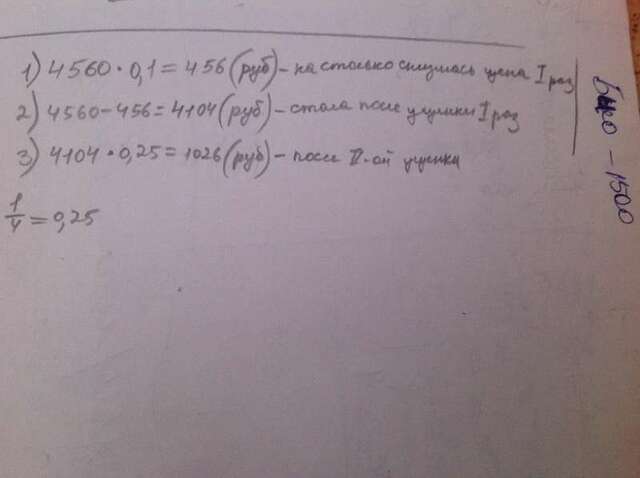 1) 4560 · 0,1 = 456 (руб) – на столько снизилась цена I раз
2) 4560 – 456 = 4104 (руб) – стала после уценки I раз
3) 4104 · 0,25 = 1026 (руб) – после II-ой уценки
1/4 = 0,25
Было – 1500